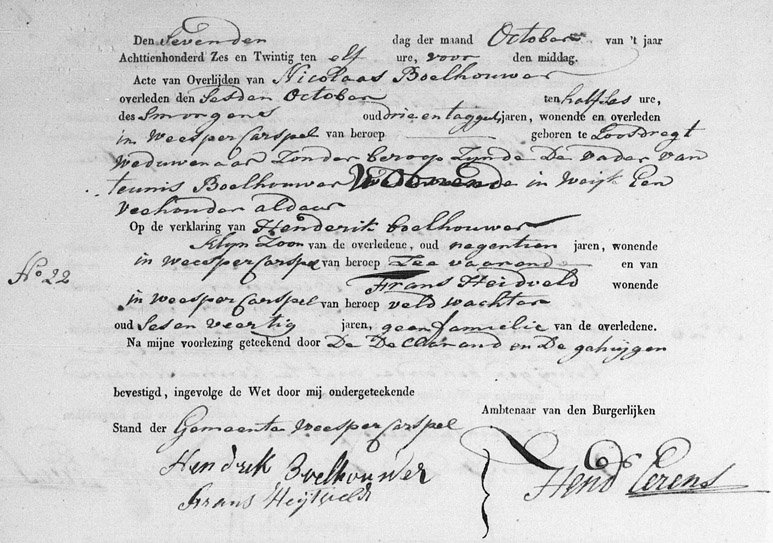 Den Sevenden dag der maand October van 't jaar
Achttienhonderd Zes en Twintig ten elf ure, voor den middag.
Acte van Overlijden van Nicolaas Boelhouwer
overleden den Sesden October ten half Ses ure,
des Smorgens oud drie en taggelig jaren, wonende en overleden
in Weesper Carspel van beroep geboren te Loosdregt
Weduwenaar Zonder beroep Zijnde De vader van
teunis Boelhouwer Woonende in Weijk Een
veehouder aldaar
Op de verklaring van Henderik boelhouwer
Klijn Zoon van de overledene, oud negentien jaren, wonende
in weesper Carspel van beroep Zee vaarand en van
No 22
Frans Heidveld wonende
in weesper Carspel van beroep veld wachter
oud Ses en veertig jaren, geen familie van de overledene.
Na mijne voorlezing geteekend door De De Clarand en De gehuijgen
bevestigd, ingevolge de Wet door mij ondergeteekende
Ambtenaar van den Burgerlijken
Stand der Gemeente Weesper Carspel
Hendrik Boelhouwer
Frans Heijtveldt
Hend Eerens